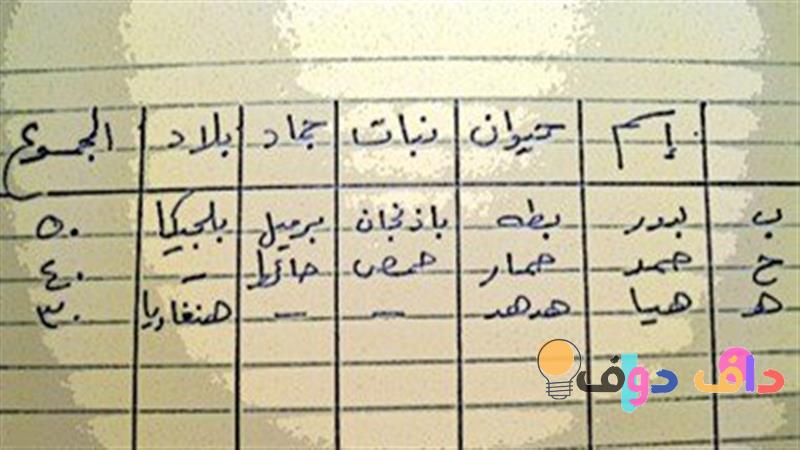 إسم حيوان نبات جماد بلاد المجموع
ب بدر بطه باذنجان برميل بلجيكا ٥٠
ح حمد حمار حمص حائط - ٤٠
هـ هيا هدهد - - هنغاريا ٣٠
داف دوف